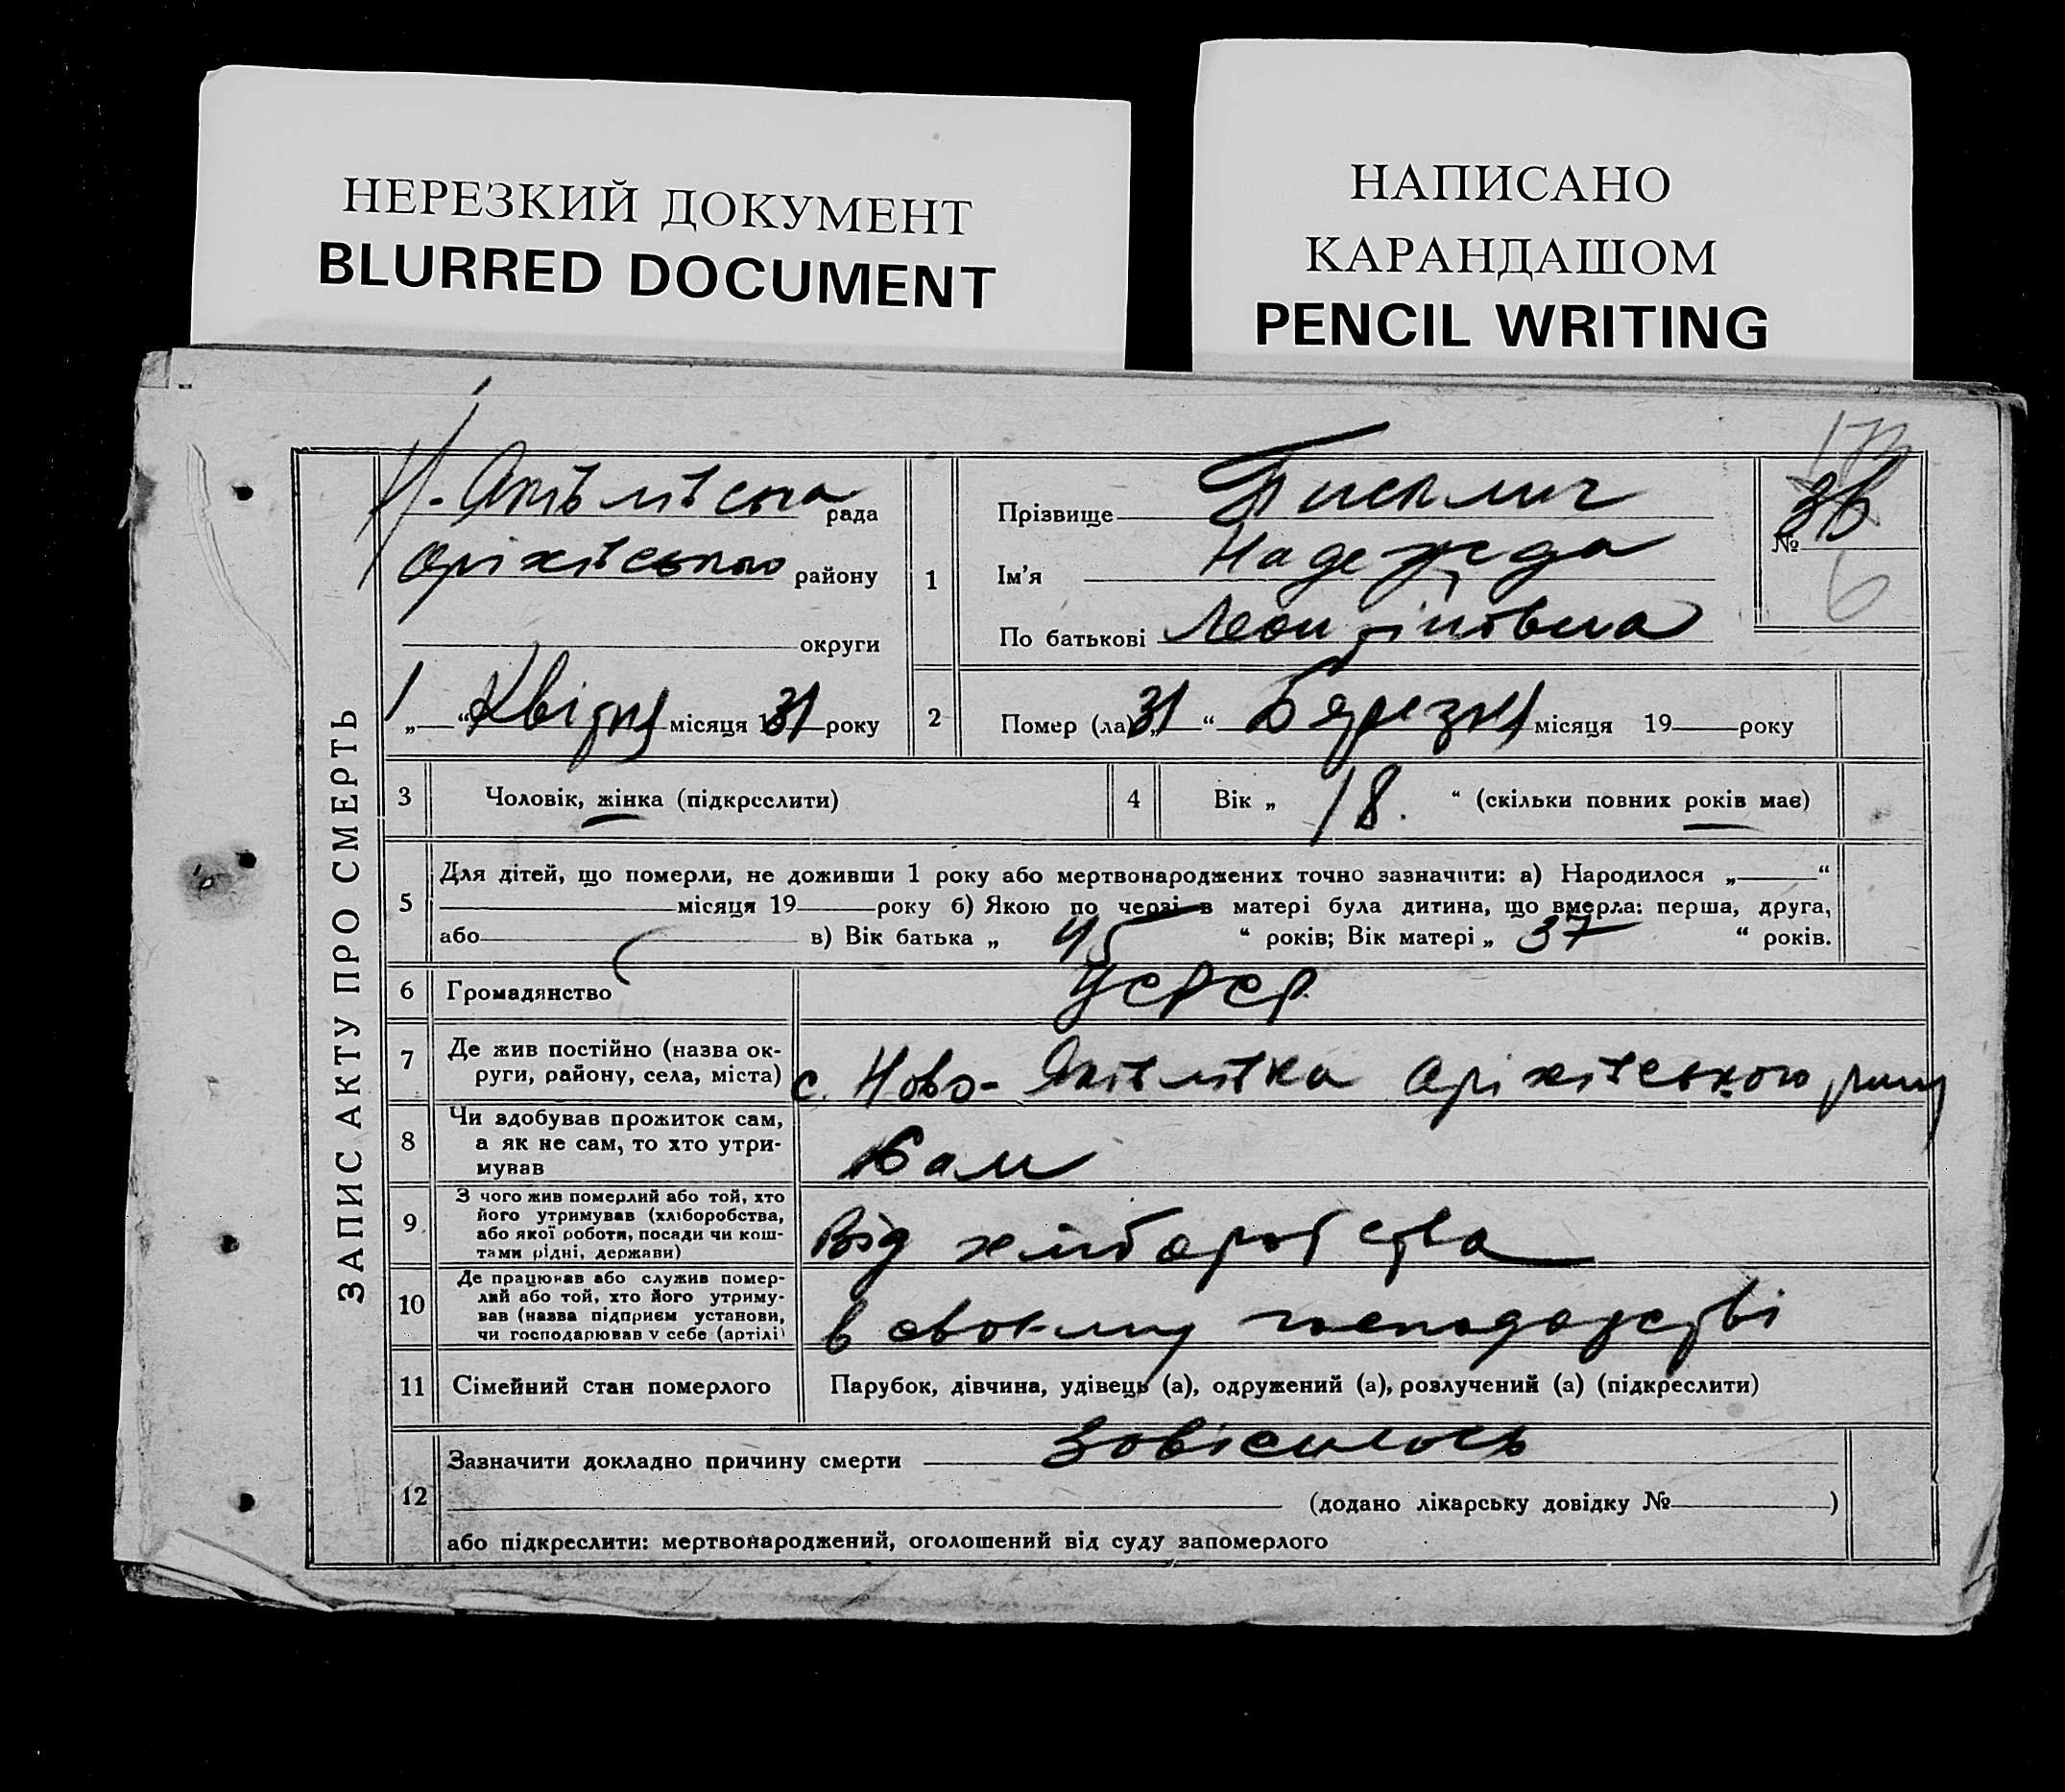 НЕРЕЗКИЙ ДОКУМЕНТ
BLURRED DOCUMENT
НАПИСАНО
КАРАНДАШОМ
PENCIL WRITING
ЗАПИС АКТУ ПРО СМЕРТЬ
Н-Яківлівська рада
Оріхівського району
округи
1 „ “ Квітня місяця 1931 року
1
Прізвище
Ім'я Надежда
По батькові
№ 36
6
2 Помер (ла) „31 “ Березня місяця 19 року
3 Чоловік, жінка (підкреслити)
4 Вік „ 18. “ (скільки повних років має)
5 Для дітей, що померли, не доживши 1 року або мертвонароджених точно зазначити: а) Народилося „ “
місяця 19 року б) Якою по черзі в матері була дитина, що вмерла: перша, друга,
або в) Вік батька „ 45 “ років; Вік матері „ 37 “ років.
6 Громадянство УСРСР
7 Де жив постійно (назва ок-
руги, району, села, міста) с. Ново-Яківлівка Оріхівського рану
8 Чи здобував прожиток сам,
а як не сам, то хто утри-
мував
Сам
9 З чого жив померлий або той, хто
його утримував (хліборобства,
або якої роботи, посади чи кош-
тами рідні, держави)
Від хліборобства
10 Де працював або служив помер-
лий або той, хто його утриму-
вав (назва підприєм установи,
чи господарював у себе (артілі)
в своєму господарстві
11 Сімейний стан померлого Парубок, дівчина, удівець (а), одружений (а), розлучений (а) (підкреслити)
12 Зазначити докладно причину смерти Зовісилось
(додано лікарську довідку № )
або підкреслити: мертвонароджений, оголошений від суду запомерлого